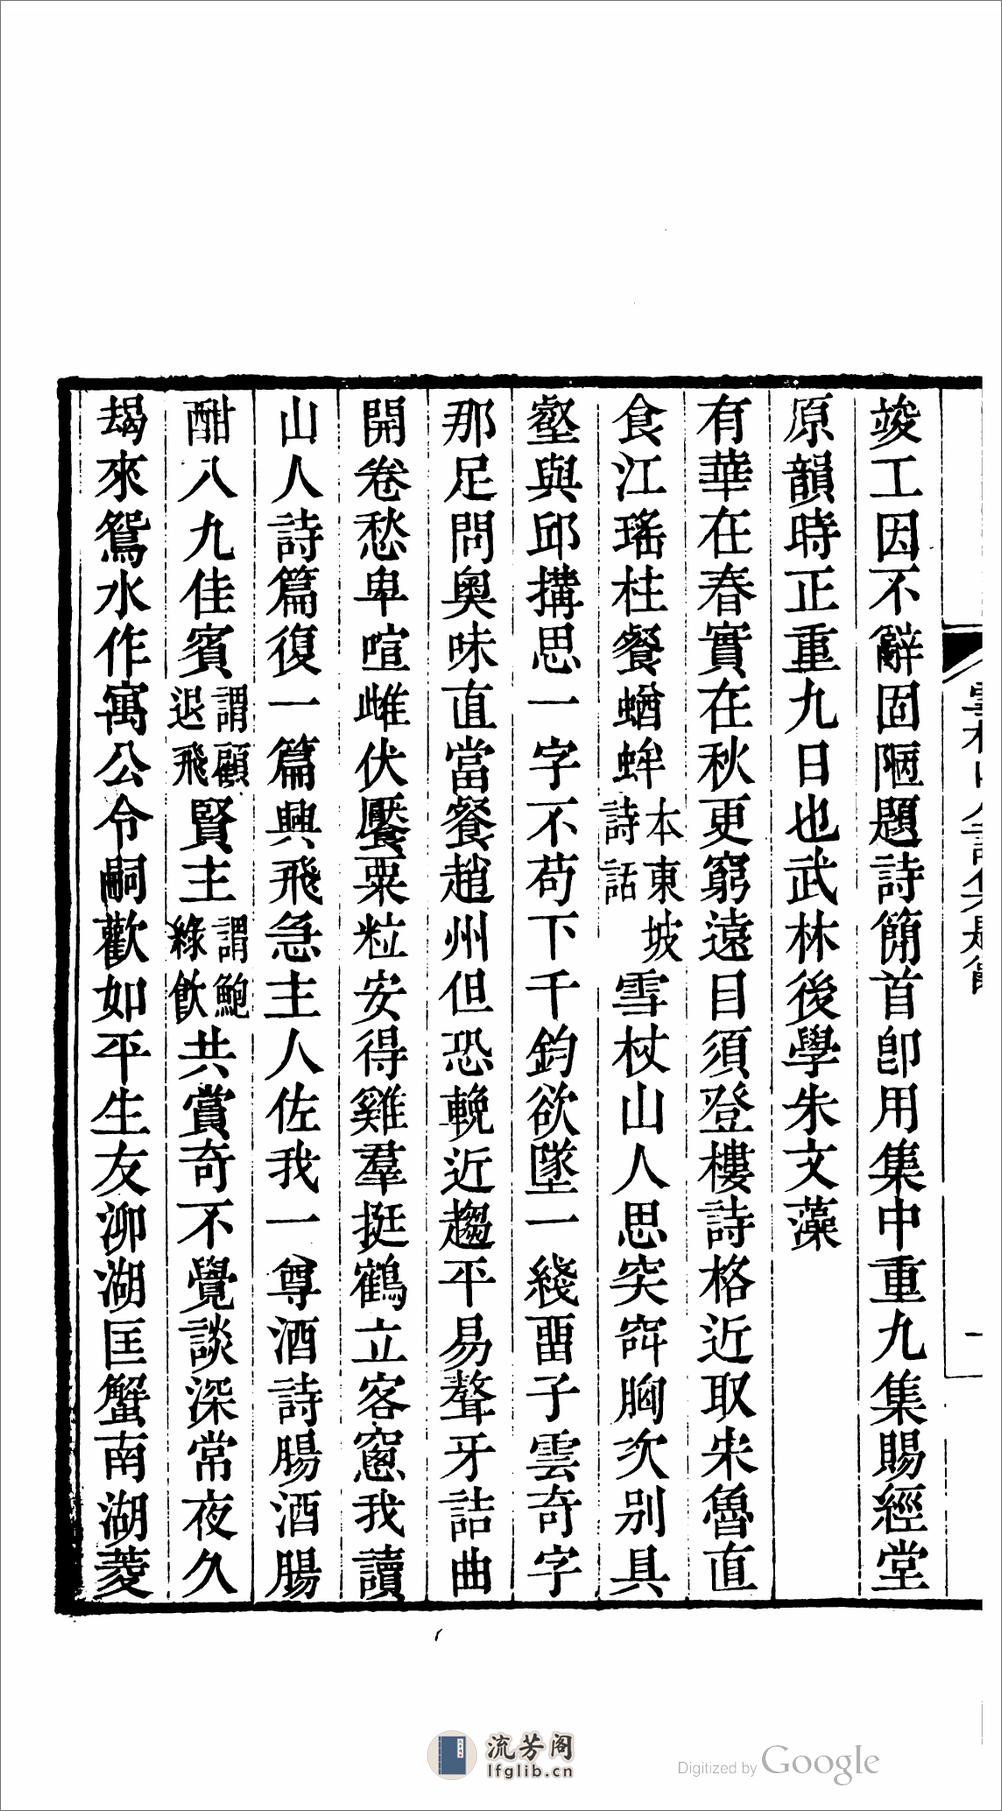 竣工因不辭固陋題詩簡首卽用集中重九集賜經堂
原韻時正重九日也武林後學朱文藻
有華在春實在秋更窮遠目須登樓詩格近取朱魯直
食江瑤柱餐蝤蛑本東坡詩話雪杖山人思突窣胸次別具
壑與邱搆思一字不苟下千鈞欲墜一綫畱子雲奇字
那足問奧味直當餐趙州但恐輓近趨平易聱牙詰曲
開卷愁卑喧雌伏饜粟粒安得雞羣挺鶴立客窻我讀
山人詩篇復一篇興飛急主人佐我一尊酒詩腸酒腸
酣八九佳賓謂顧退飛賢主謂鮑綠飲共賞奇不覺談深常夜久
朅來鴛水作寓公令嗣歡如平生友泖湖匡蟹南湖菱
流芳阁
lfglib.cn
Digitized by Google